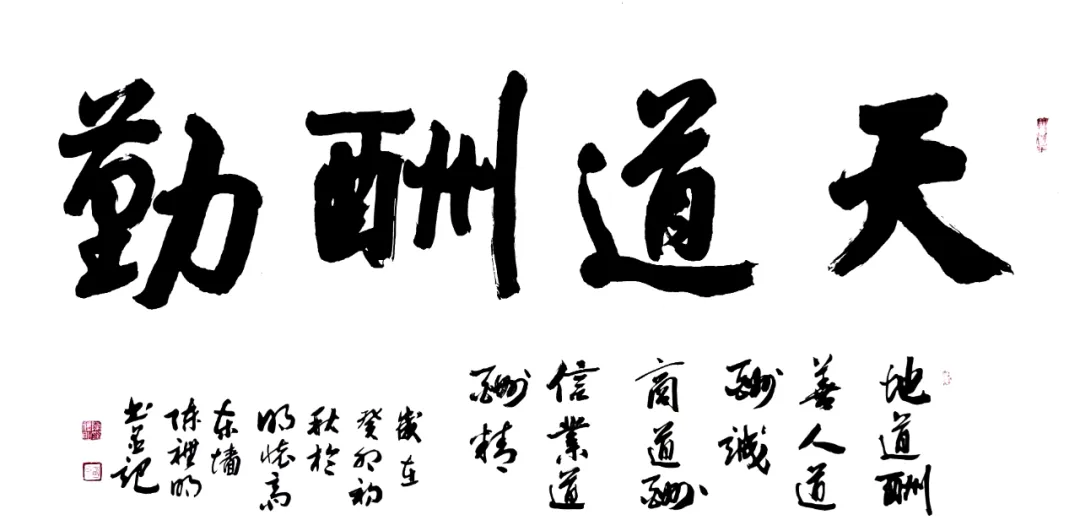 天道酬勤
地道酬
善人道
酬誠
商道酬
信業道
酬精
歲在
癸卯初
秋於
明高
东墙
陈禮明
书并记